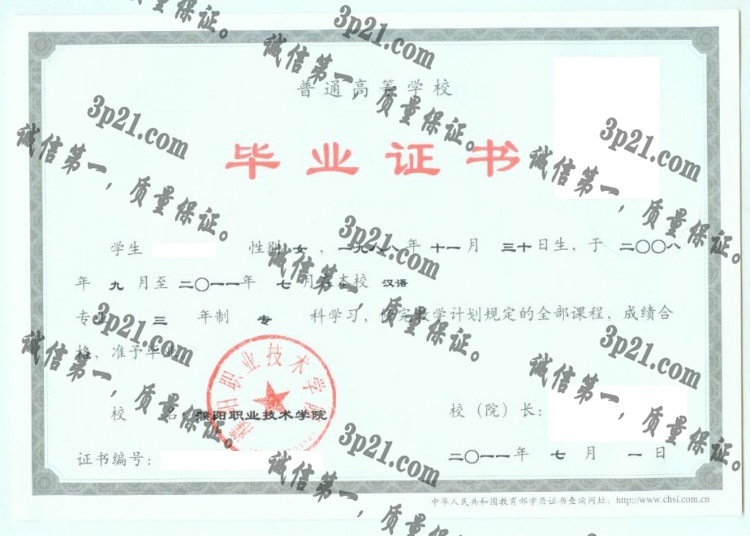 普通高等学校
毕业证书
学生 性别 女 ，一九八八年 十一月 三十日生，于 二〇〇八
年 九 月至 二〇一一年 七 月在本校 汉语
专业 三 年制 专 科学习，修完教学计划规定的全部课程，成绩合
格，准予毕业。
校 名：濮阳职业技术学院
校（院）长：
证书编号：
二〇一一年 七 月 一日
中华人民共和国教育部学历证书查询网址：http://www.chsi.com.cn
濮阳职业技术学院
3p21.com
诚信第一，质量保证。
3p21.com
诚信第一，质量保证。
3p21.com
诚信第一，质量保证。
3p21.com
诚信第一，质量保证。
3p21.com
诚信第一，质量保证。
3p21.com
诚信第一，质量保证。
3p21.com
诚信第一，质量保证。